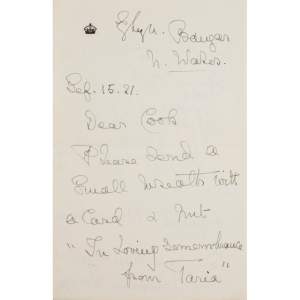 Bangor
N. Wales.
Sep. 15. 21.
Dear Cook
Please send a
Small Wreath with
a Card &
"In Loving Remembrance
from Taria"